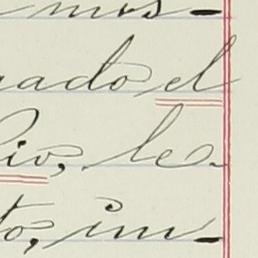 mos-
rado el
io, le-
to, im-